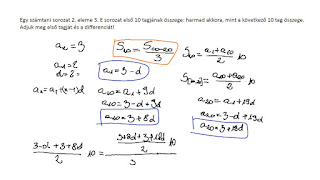 Egy számtani sorozat 2. eleme 3. E sorozat első 10 tagjának összege: harmad akkora, mint a következő 10 tag összege.
Adjuk meg első tagját és a differenciát!
a₂ = 3
a₁ = ?
d = ?
aₙ = a₁ + (n-1)d
S₁₀ = S₁₀₋₂₀ / 3
a₁ = 3 - d
a₁₀ = a₁ + 9d
a₁₀ = 3 - d + 9d
a₁₀ = 3 + 8d
S₁₀ = (a₁ + a₁₀) / 2 10
a₂₀ = a₁ + 19d
a₂₀ = 3 - d + 19d
a₂₀ = 3 + 18d
(3 - d + 3 + 8d) / 2 10 = ((3 + 8d + 3 + 18d) / 2 10) / 3